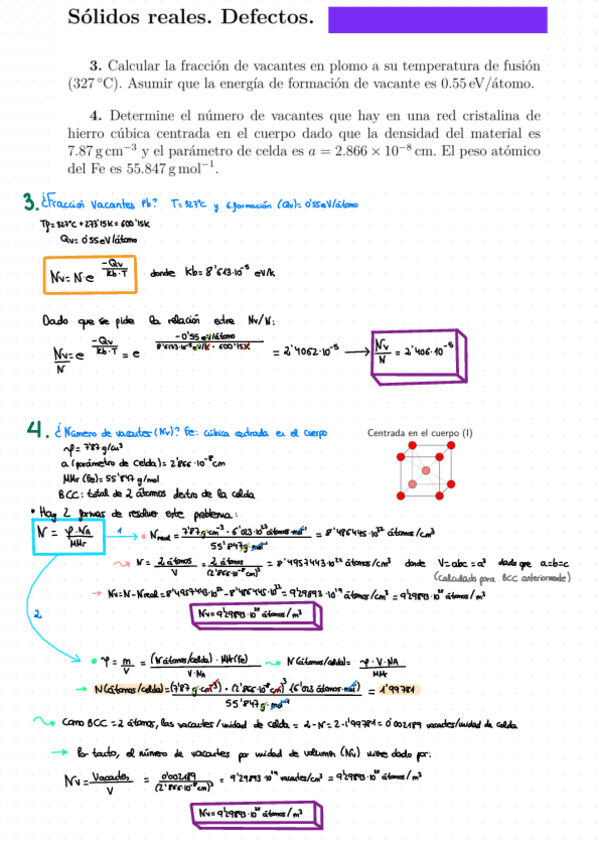 Sólidos reales. Defectos.
3. Calcular la fracción de vacantes en plomo a su temperatura de fusión
(327 °C). Asumir que la energía de formación de vacante es 0.55 eV/átomo.
4. Determine el número de vacantes que hay en una red cristalina de
hierro cúbica centrada en el cuerpo dado que la densidad del material es
7.87 g cm⁻³ y el parámetro de celda es a = 2.866 × 10⁻⁸ cm. El peso atómico
del Fe es 55.847 g mol⁻¹.
3. ¿Fracción vacantes Pb? T=327°C y Eformación (Qv)= 0'55eV/átomo
Tf=327°C + 273'15K= 600'15K
Qv= 0'55eV/átomo
Nv= N·e^(-Qv/(kb·T)) donde kb= 8'613·10⁻⁵ eV/k
Dado que se pide la relación entre Nv/N:
Nv/N = e^(-Qv/(kb·T)) = e^(-0'55 eV/átomo / (8'613·10⁻⁵ eV/k · 600'15k)) = 2'4062·10⁻⁵ → Nv/N = 2'406·10⁻⁵
4. ¿Número de vacantes (Nv)? Fe: cúbica centrada en el cuerpo
Centrada en el cuerpo (I)
ρ= 7'87 g/cm³
a (parámetro de celda)= 2'866·10⁻⁸ cm
MMr (Fe)= 55'847 g/mol
BCC: total de 2 átomos dentro de la celda
• Hay 2 formas de resolver este problema:
N = ρ·NA/MMr 1 Nreal = 7'87 g·cm⁻³ · 6'023·10²³ átomos·mol⁻¹ / 55'847 g·mol⁻¹ = 8'486445·10²² átomos/cm³
N = 2 átomos/V = 2 átomos/(2'866·10⁻⁸ cm)³ = 8'4957443·10²² átomos/cm³ donde V=abc=a³ dado que a=b=c
(calculado para BCC anteriormente)
→ Nv=N-Nreal= 8'4957443·10²² - 8'486445·10²² = 9'29893·10¹⁹ átomos/cm³ = 9'29893·10²⁵ átomos/m³
Nv= 9'29893·10²⁵ átomos/m³
2
• ρ = m/V = (N átomos/celda)·MMr(Fe) / V·NA N(átomos/celda)= ρ·V·NA / MMr
→ N(átomos/celda)= (7'87 g·cm⁻³)·(2'866·10⁻⁸ cm)³ (6'023 átomos·mol⁻¹) / 55'847 g·mol⁻¹ = 1'99781
Como BCC = 2 átomos, las vacantes/unidad de celda = 2-N = 2-1'99781 = 0'002189 vacantes/unidad de celda
→ Por tanto, el número de vacantes por unidad de volumen (Nv) viene dado por:
Nv = Vacantes/V = 0'002189/(2'866·10⁻⁸ cm)³ = 9'29893·10¹⁹ vacantes/cm³ = 9'29893·10²⁵ átomos/m³
Nv= 9'29893·10²⁵ átomos/m³